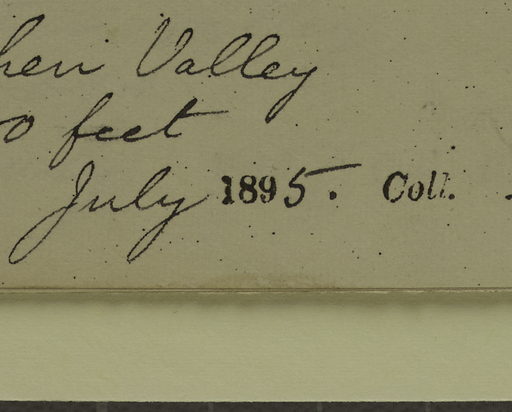 hen Valley
0 feet
July 1895. Coll.